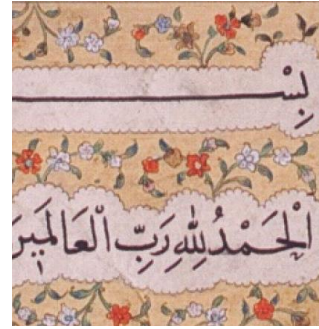 بِسْـ
اَلْحَمْدُ لِلّٰهِ رَبِّ الْعَالَمِينَ